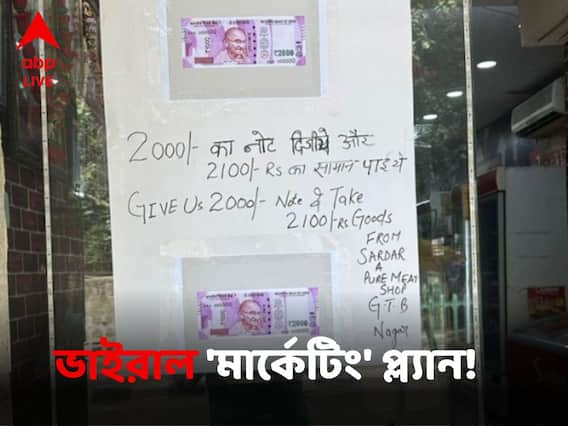 abp
LIVE
₹2000
2000/- का नोट दिजीये और
2100/- Rs का सामान पाईये
GIVE US 2000/- Note & Take
2100/-Rs Goods
FROM
SARDAR
A
PURE MEAT
SHOP
G.T.B
Nagar
₹2000
ভাইরাল 'মার্কেটিং' প্ল্যান!